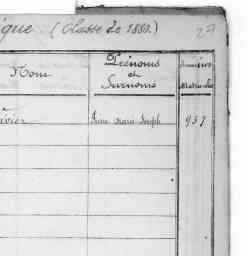 ique (Classe de 1880.) 27
Nom
Prénoms
et
Surnoms
Numéros
Matricules
vier Marie Joseph 937